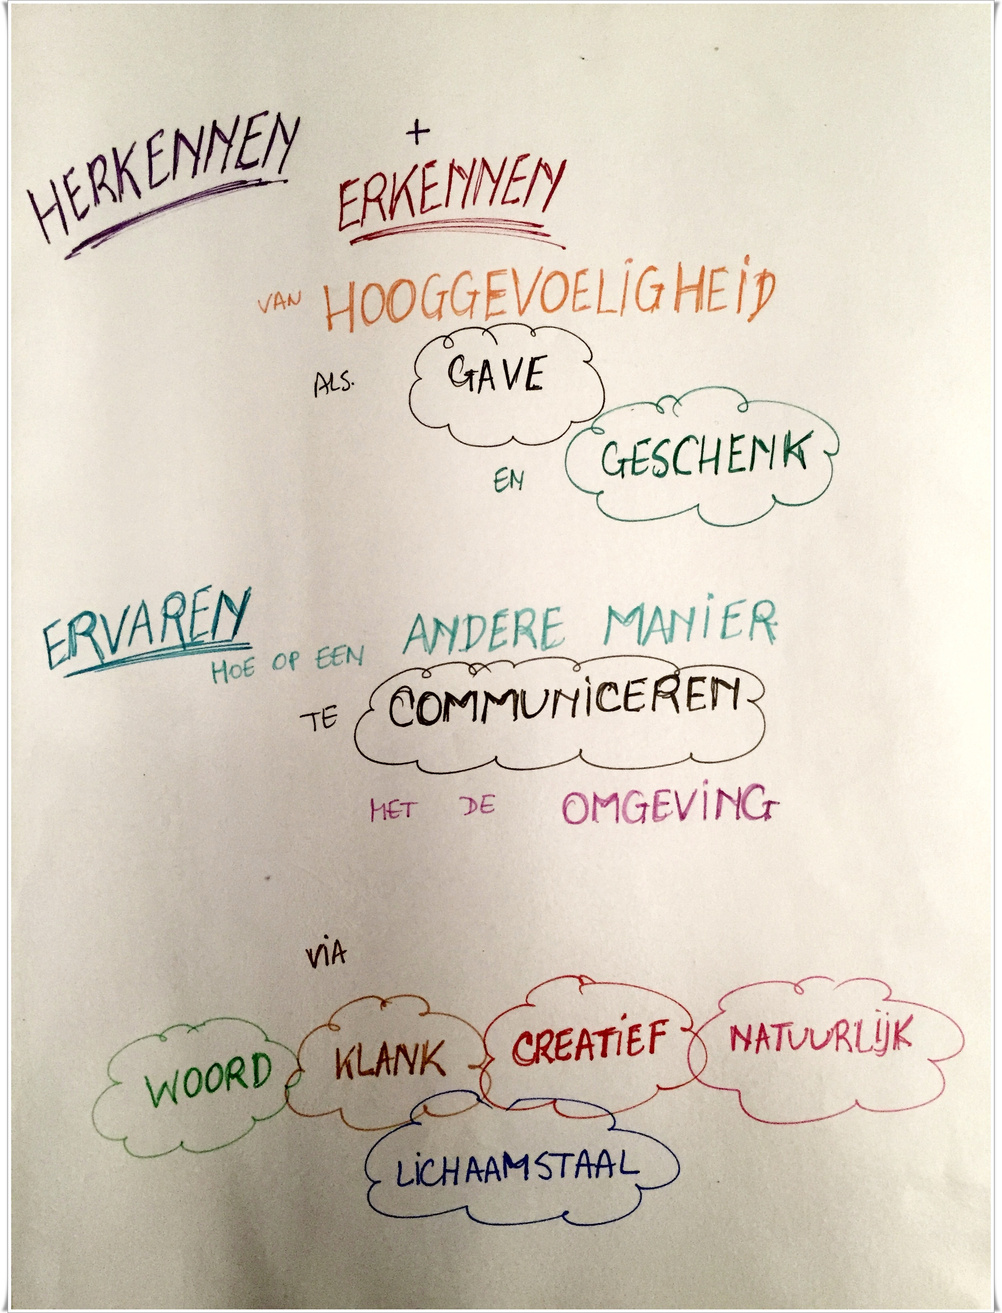 HERKENNEN +
ERKENNEN
VAN HOOGGEVOELIGHEID
ALS. GAVE
EN GESCHENK
ERVAREN HOE OP EEN ANDERE MANIER
TE COMMUNICEREN
MET DE OMGEVING
VIA
WOORD KLANK CREATIEF NATUURLIJK
LICHAAMSTAAL